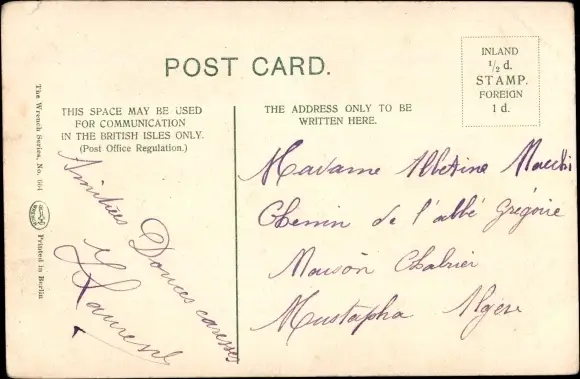 POST CARD.
INLAND
½ d.
STAMP.
FOREIGN
1 d.
THIS SPACE MAY BE USED
FOR COMMUNICATION
IN THE BRITISH ISLES ONLY.
(Post Office Regulation.)
THE ADDRESS ONLY TO BE
WRITTEN HERE.
The Wrench Series, No.
Printed in Berlin
Amitiés
Douces caresses
Madame Albertine
Chemin de l'abbé Grégoire
Maison Chabrier
Mustapha Alger